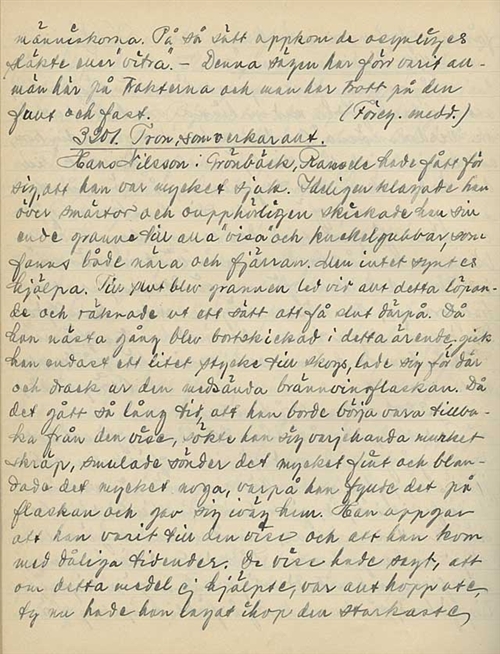 människorna. På så sätt uppkom de osynliges
släkte eller "vitra. – Denna sägen har förr varit all-
män här på trakterna och man har trott på den
fullt och fast. (Föreg. medd.)
3201. Tron, som verkar allt.
Hans Nilsson i Grönbäck, Ramsele hade fått för
sig, att han var mycket sjuk. Ideligen klagade han
över smärtor och oupphörligen skickade han sin
ende granne till alla "visa" och kuckelgubbar, som
fanns både nära och fjärran. Men intet syntes
hjälpa. Till slut blev grannen led vid allt detta löpan-
de och räknade ut ett sätt att få slut därpå. Då
han nästa gång blev bortskickad i detta ärende, gick
han endast ett litet stycke till skogs, lade sig för där
och drack ur den medsända brännvinsflaskan. Då
det gått så lång tid, att han borde börja vara tillba-
ka från den vise, sökte han sig varjehanda murket
skräp, smulade sönder det mycket fint och blan-
dade det mycket noga, varpå han fyllde det på
flaskan och gav sig iväg hem. Han uppgav
att han varit till den vise och att han kom
med dåliga tidender. De vise hade sagt, att
om detta medel ej hjälpte, var allt hopp ute,
ty nu hade han lagat ihop den starkaste